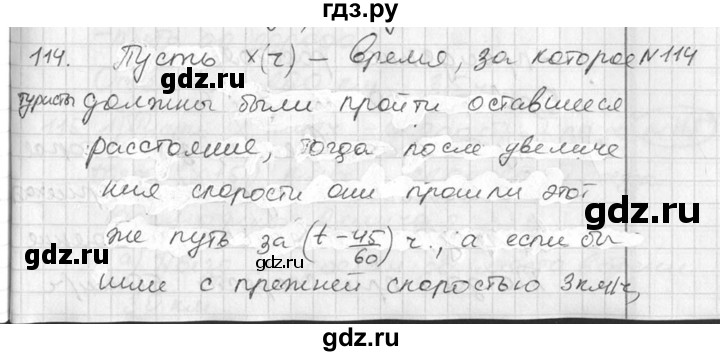 гдз.ру
114. Пусть x(ч) – время, за которое №114
туристы должны были пройти оставшееся
расстояние, тогда после увеличе
ния скорости они прошли этот
же путь за (t - 45/60) ч., а если бы
gdz.ru
gdz.ru
шли с прежней скоростью 3км/ч,
gdz.ru
gdz.ru